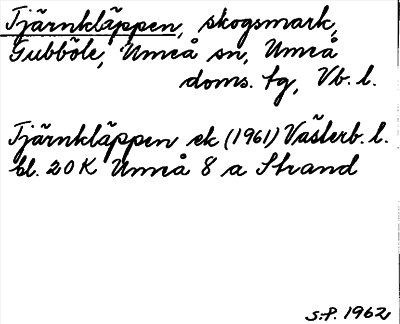 Tjärnkläppen, skogsmark,
Gubböle, Umeå sn, Umeå
doms. tg, Vb. l.
Tjärnkläppen ek (1961) Västerb. l.
bl. 20 K Umeå 8 a Strand
S.P. 1962